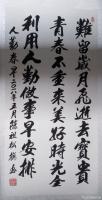 難留歲月飛逝去寶貴
青春不重来美好時光全
利用人勤做事早安排
人勤春早二〇一